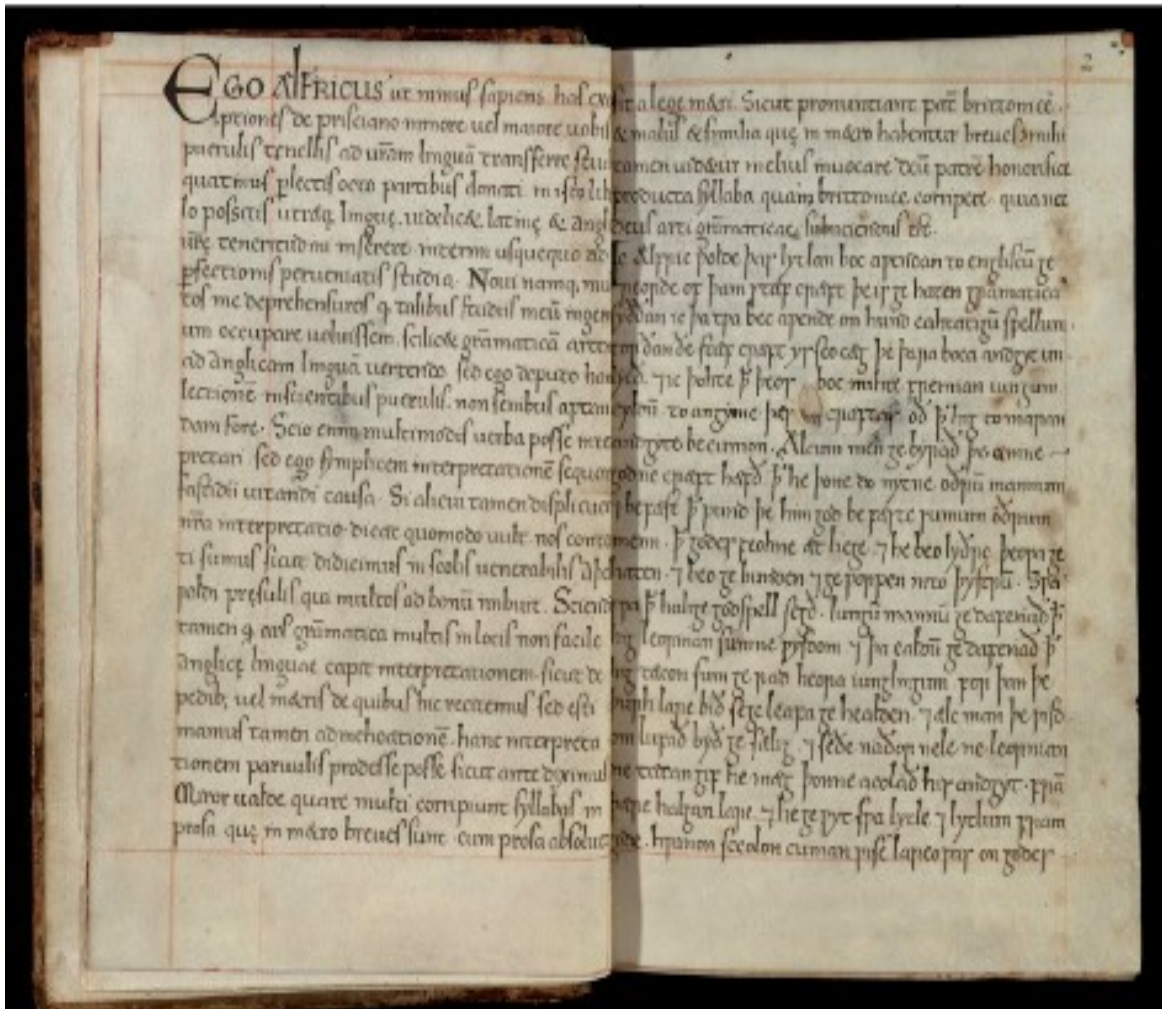 EGO ÆLFRICUS ut minus sapiens has
ptiones de prisciano minore uel maiore uobis
puerulis tenellis ad ur̄am linguā transferre
quatinus plectis octo partibus donati in isto
lo possitis utraq; linguę. uidelic& latinę &
ur̄ę teneritudini inserere interim usquequo ad
pfectioris perueniatis studia. Noui namq;
tos me deprehensuros q talibus studiis meū
um occupare uoluissem. scilic& grāmaticā
ad anglicam linguā uertendo. sed ego deputo
lectionē inscientibus puerulis. non senibus
dam fore. Scio enim multimodis uerba posse
pretari. sed ego symplicem interpretationē
fastidii uitandi causa. Si alicui tamen
nr̄a interpretatio. dicat quomodo uult. nos
ti sumus sicut didicimus in scolis uenerabilis
ƿoldi pręsulis qui multos ad bonū imbuit.
tamen q ars grāmatica multis in locis non facile
anglicę linguae capit interpretationem. sicut de
pedib; uel m&ris de quibus hic reticemus sed esti
mamus tamen ad inchoationē. hanc interpreta
tionem paruulis prodesse posse sicut ante diximus
Miror ualde quare multi corripiunt syllabas in
prosa. quę in m&ro breues sunt. cum prosa
2
a lege m&ri. Sicut pronuntiant patrē brittonice.
& malus & similia quę in m&ro habentur breues. mihi
tamen uid&ur melius inuocare deū patrē honorifice
producta syllaba quam brittonice corripere. quia nec
deus arti grāmaticae subiciendus est.
Ælfric ƿolde þas lytlan boc aƿendan to engliscū ge
of þam stæf cræft þe is ge haten grāmatica
ic þa tƿa bec aƿende on hund eahtatigū spellum.
stæf cræft ys seo cæg þe þæra boca andgyt un
7 ic þohte ꝥ þeos boc mihte fremian iungum
to anginne þæs cræftas oð ꝥ hig to maran
andgyte becumon. Ælcum men ge byrað þe ænine
godne cræft hæfð. ꝥ he þone do nytne oðrū mannum
be fæste ꝥ pund þe him god be fæste sumum oðrum
menn. ꝥ godes feohne æt licge. 7 he beo lyðre þeoƿa ge
haten. 7 beo ge bunden 7 ge ƿorpen into þystrū. Sƿa
sƿa ꝥ halige godspell segð. Iungū mannū ge dafenað ꝥ
hig leornian sumne ƿysdom 7 þa ealdū ge dafenað ꝥ
hig tæcon sum ge rad heora iunglingum. for þan þe
þurh lare bið se ge leafa ge healden. 7 ælc man þe ƿisd
om lufað byð ge sælig. 7 seðe naðor nele ne leornian
ne tæcan gif he mæg þonne acolað his andgyt. fram
þære halgan lare. 7 he ge ƿyt sƿa lytle 7 lytlum fram
gode. hƿanon sceolon cuman ƿise lareoƿas on godes